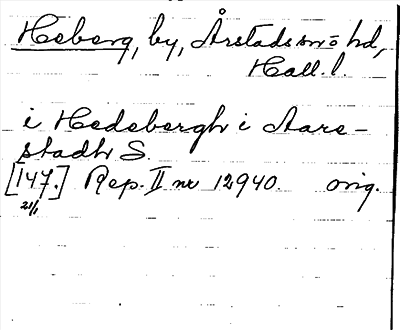 Heberg, by, Årstads sn o hd,
Hall. l.
i Hedebergh i Aare-
stadh S.
[147.] Rep. II nr 12940. orig.
21/1